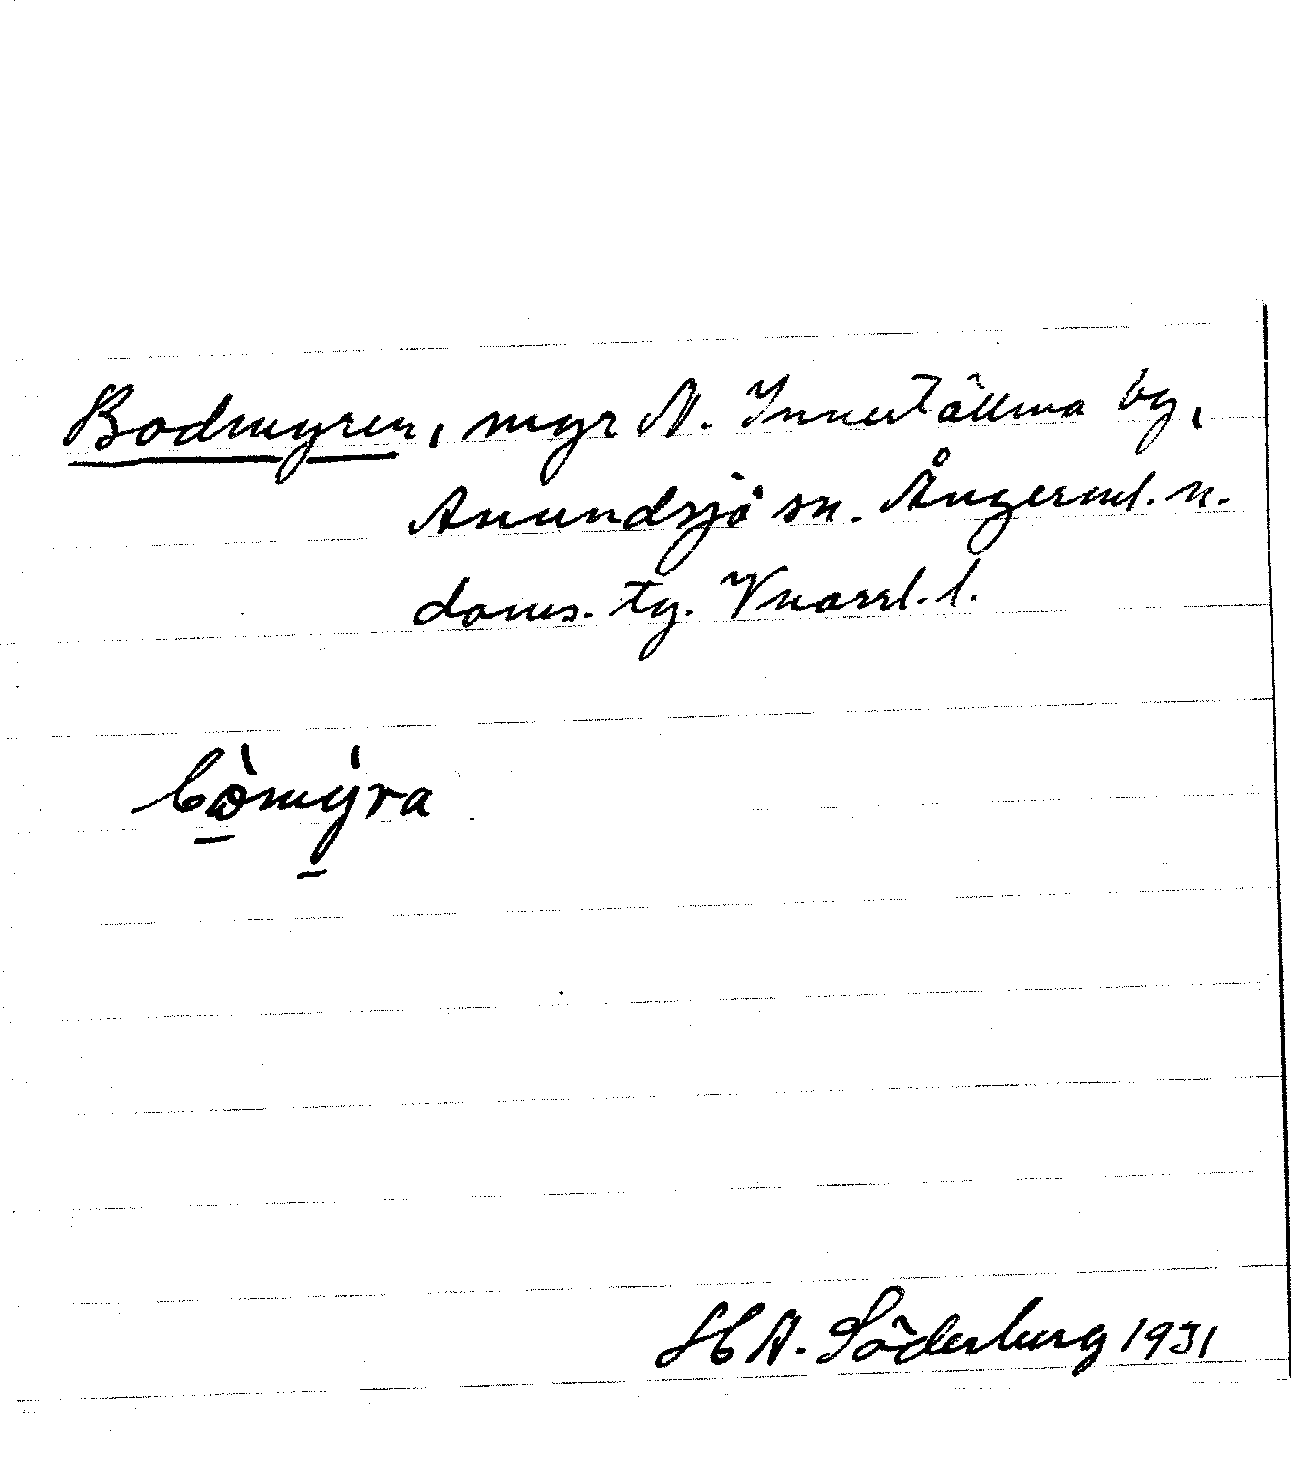 Bodmyren, myr N. Innertällmo by,
Anundsjö sn. Ångerml. n.
doms. tg. Vnorrl. l.
bòmýra
H A. Söderberg 1931